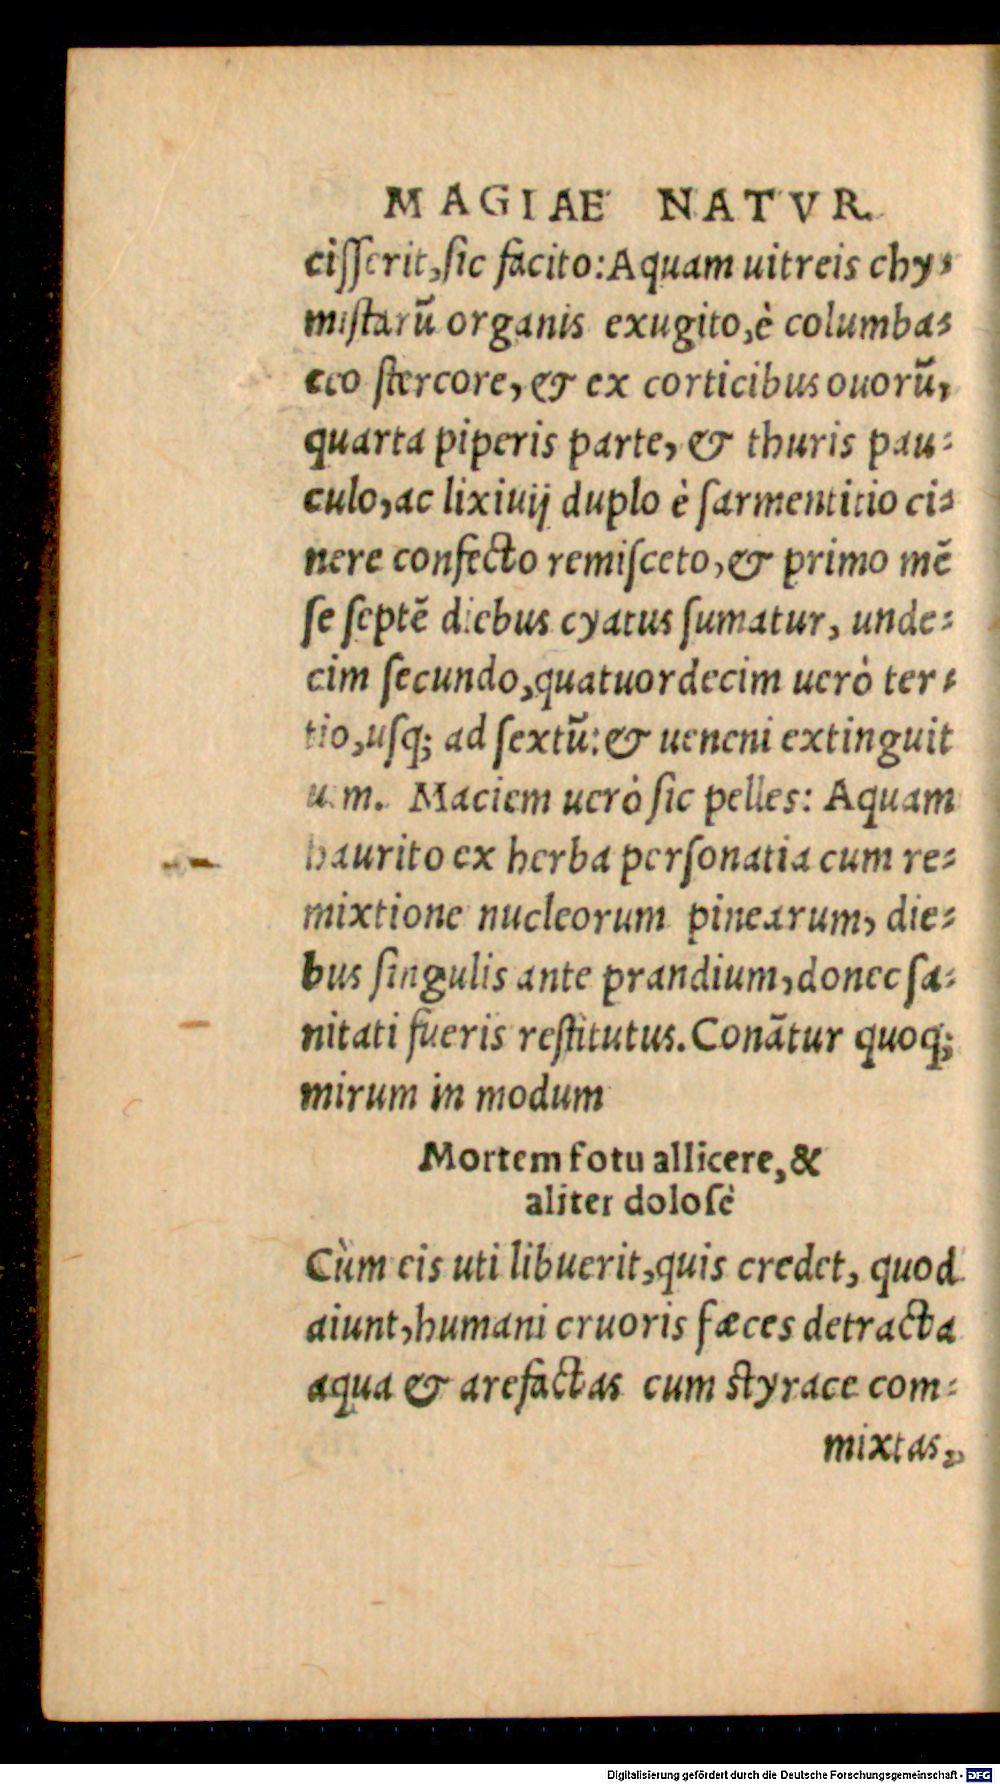 MAGIAE NATVR.
ciſſerit, ſic facito: Aquam uitreis chy⸗
miſtarũ organis exugito, è columba⸗
ceo ſtercore, & ex corticibus ouorũ,
quarta piperis parte, & thuris pau⸗
culo, ac lixiuij duplo è ſarmentitio ci⸗
nere confecto remiſceto, & primo mẽ
ſe ſeptẽ diebus cyatus ſumatur, unde⸗
cim ſecundo, quatuordecim uerò ter⸗
tio, uſq; ad ſextũ: & ueneni extinguit
uim. Maciem uerò ſic pelles: Aquam
haurito ex herba perſonatia cum re⸗
mixtione nucleorum pinearum, die⸗
bus ſingulis ante prandium, donec ſa⸗
nitati fueris reſtitutus. Conãtur quoq;
mirum in modum
Mortem fotu allicere, &
aliter doloſè
Cùm eis uti libuerit, quis credet, quod
aiunt, humani cruoris fæces detracta
aqua & arefactas cum ſtyrace com⸗
mixtas,
Digitalisierung gefördert durch die Deutsche Forschungsgemeinschaft - DFG